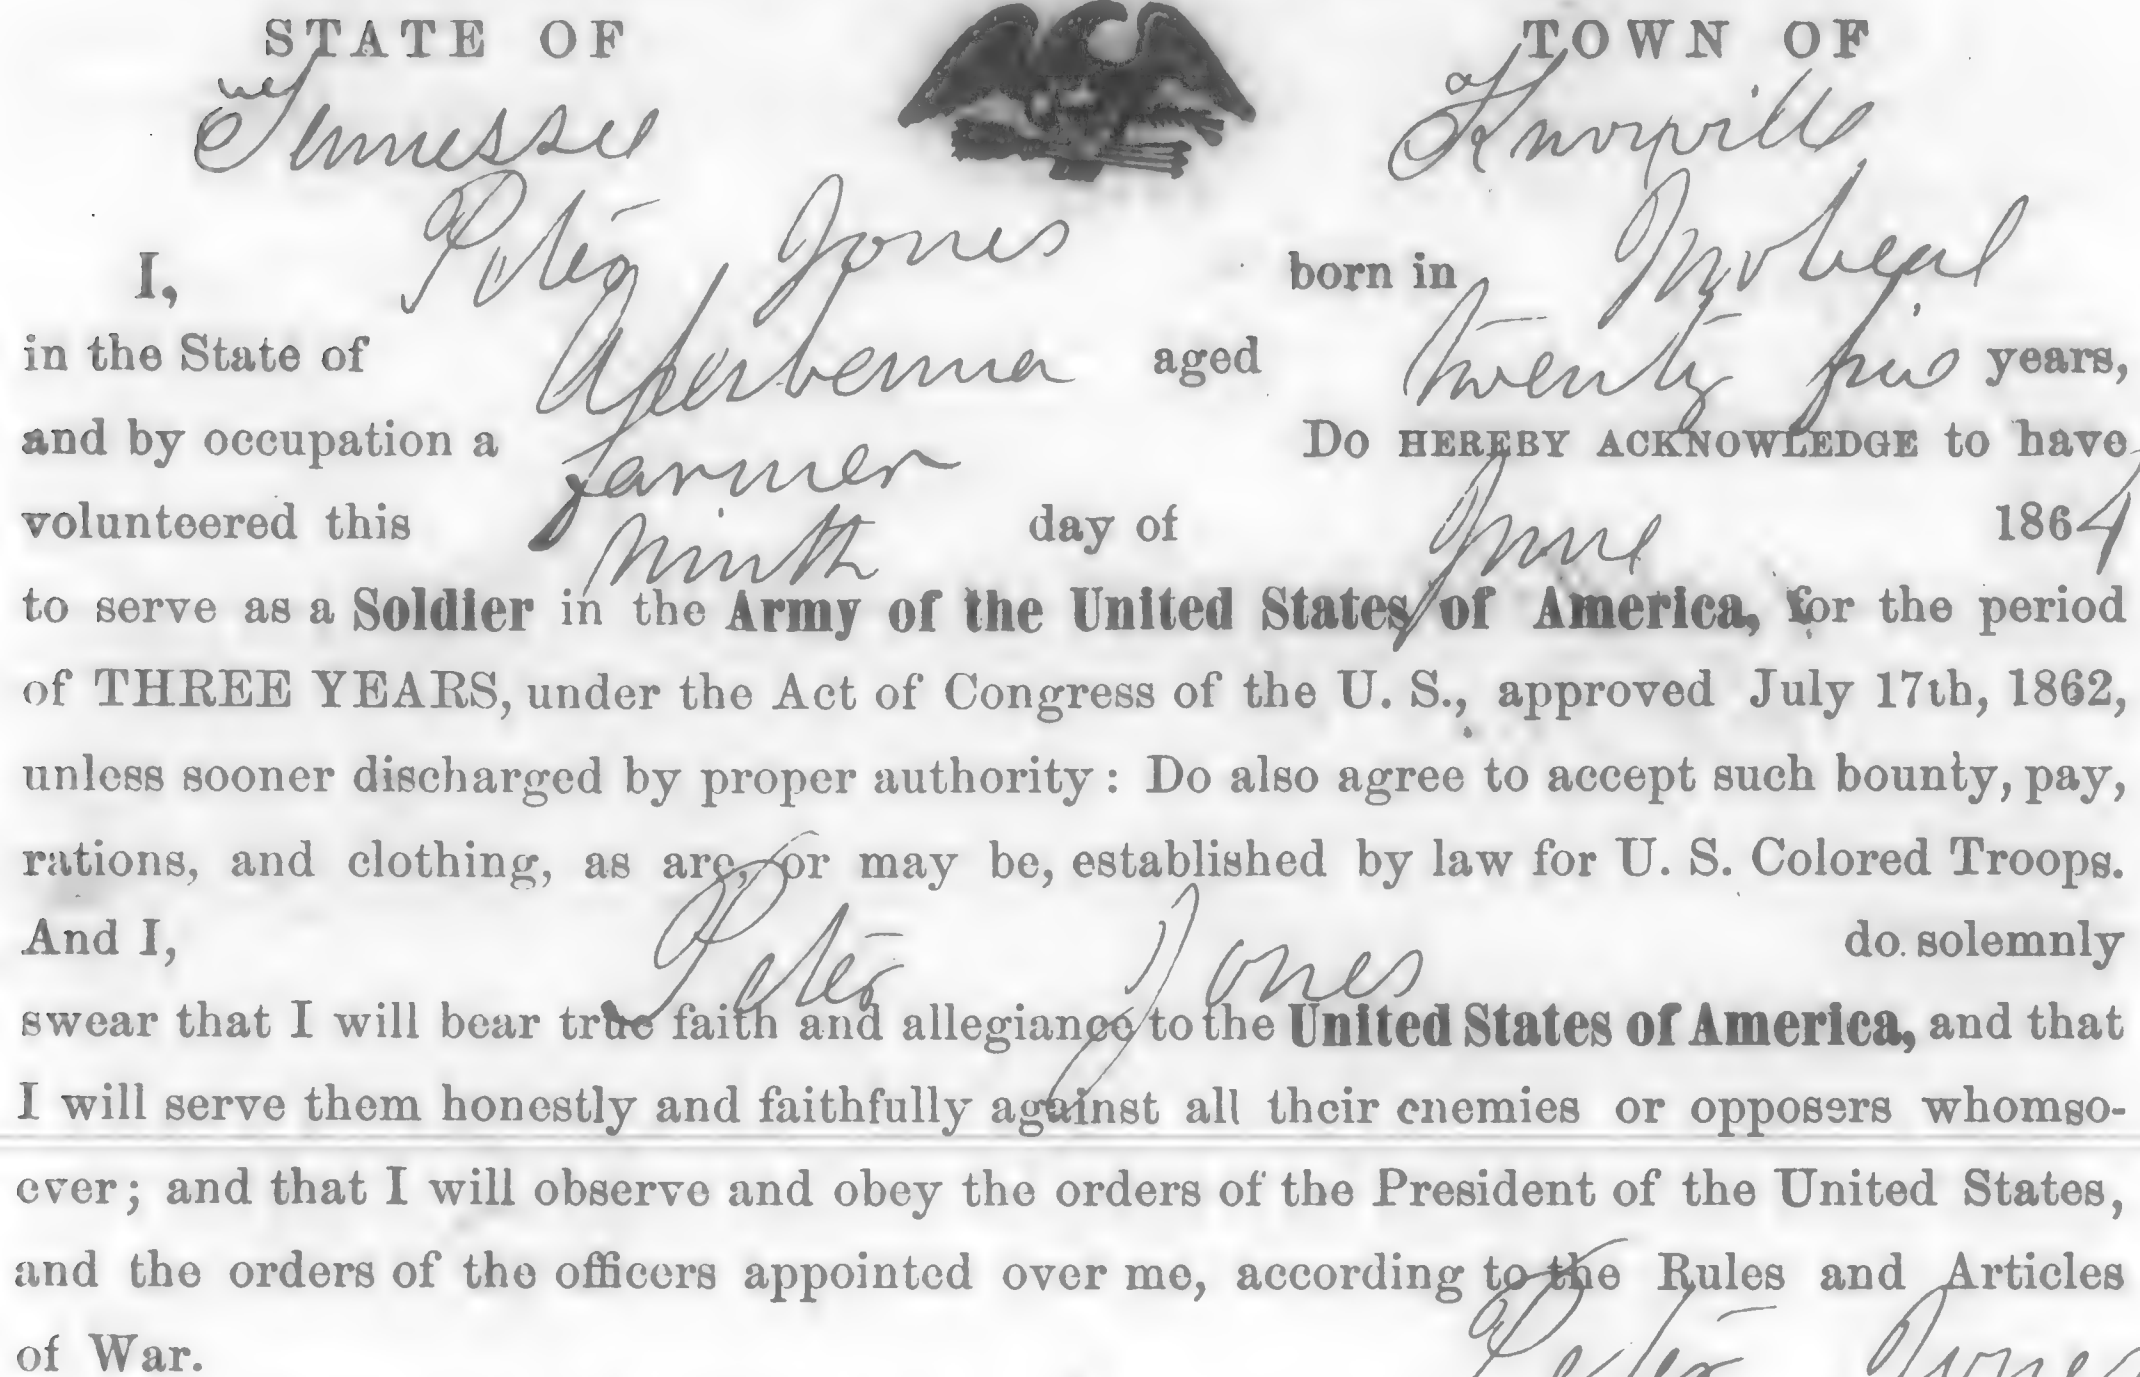 STATE OF TOWN OF
Tennessee Knoxville
I, Peter Jones born in Mobeal
in the State of aged twenty five years,
and by occupation a farmer Do HEREBY ACKNOWLEDGE to have
volunteered this ninth day of June 1864
to serve as a Soldier in the Army of the United States of America, for the period
of THREE YEARS, under the Act of Congress of the U. S., approved July 17th, 1862,
unless sooner discharged by proper authority: Do also agree to accept such bounty, pay,
rations, and clothing, as are, or may be, established by law for U. S. Colored Troops.
And I, Peter Jones do solemnly
swear that I will bear true faith and allegiance to the United States of America, and that
I will serve them honestly and faithfully against all their enemies or opposers whomso-
ever; and that I will observe and obey the orders of the President of the United States,
and the orders of the officers appointed over me, according to the Rules and Articles
of War. Peter Jones